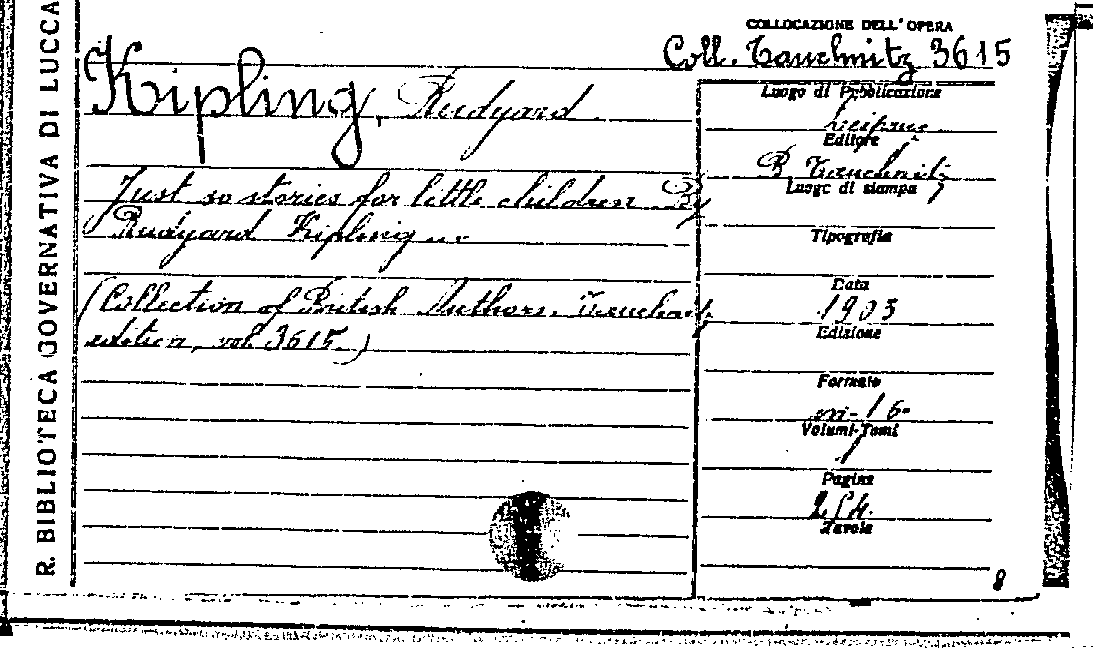 R. BIBLIOTECA GOVERNATIVA DI LUCCA
COLLOCAZIONE DELL' OPERA
Coll. Tauchnitz 3615
Kipling, Rudyard
Just so stories for little children By
Rudyard Kipling ...
(Collection of British Authors. Tauchnitz
edition, vol. 3615.)
Luogo di Pubblicazione
Leipzig
Editore
B. Tauchnitz
Luogo di stampa
Tipografia
Data
1903
Edizione
Formato
in-16-
Volumi-Tomi
1
Pagine
254.
Tavole
8